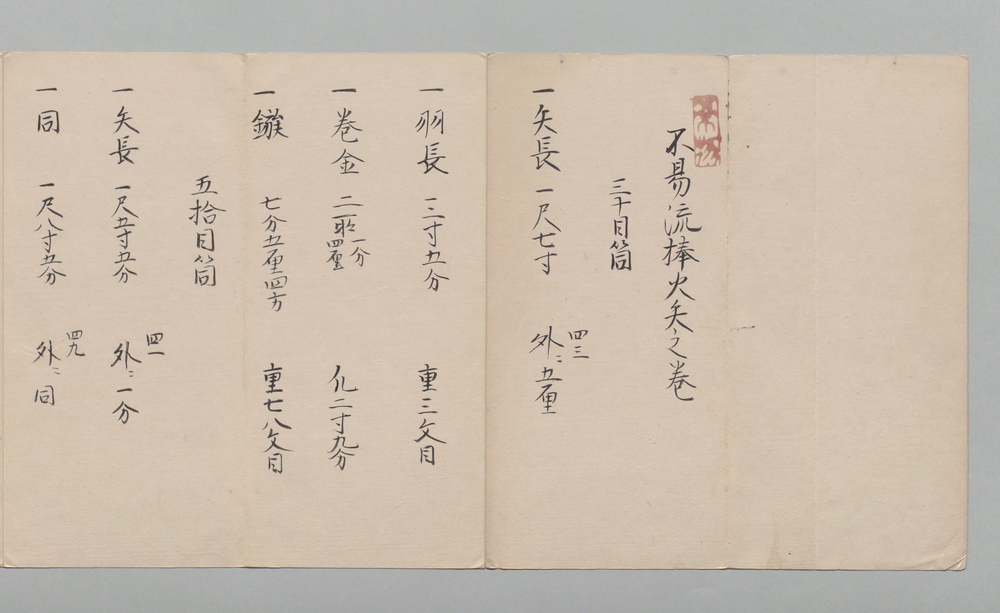 不易流棒火矢之巻
三十目筒
一 矢長 一尺七寸 四三 外ニ五厘
一 羽長 三寸五分 重三文目
一 巻金 二 一分 四厘 二寸九分
一 鏃 七分五厘四方 重七八文目
五拾目筒
一 矢長 一尺五寸五分 四一 外ニ一分
一 同 一尺八寸五分 四九 外ニ同